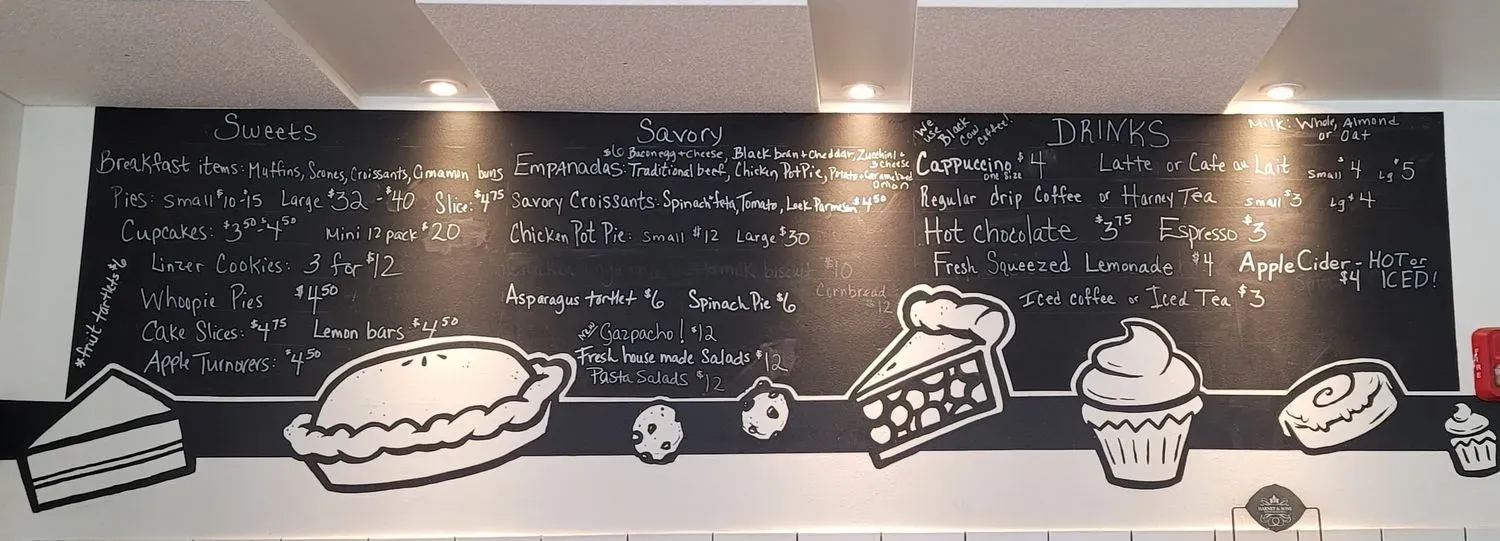 Sweets
Breakfast items: Muffins, Scones, Croissants, Cinnamon buns
Pies: Small $10-15 Large $32-$40 Slice: $4.75
Cupcakes: $3.50-$4.50 Mini 12 pack $20
Linzer Cookies: 3 for $12
Whoopie Pies $4.50
Cake Slices: $4.75 Lemon bars $4.50
Apple Turnovers: $4.50
*fruit tartlets $6
Savory
$6 Bacon egg + Cheese, Black bean + Cheddar, Zucchini + 3 Cheese
Empanadas: Traditional beef, Chicken Pot Pie, Potato + Caramelized onion
Savory Croissants: Spinach + feta, Tomato, Leek Parmesan $4.50
Chicken Pot Pie: Small $12 Large $30
biscuit $10
Cornbread $12
Asparagus tartlet $6 Spinach Pie $6
New Gazpacho! $12
Fresh house made Salads $12
Pasta Salads $12
We use Black Cow Coffee!
DRINKS
Milk: Whole, Almond or Oat
Cappuccino $4 one size Latte or Cafe au Lait Small $4 Lg $5
Regular drip Coffee or Harney Tea small $3 Lg $4
Hot chocolate $3.75 Espresso $3
Fresh Squeezed Lemonade $4 Apple Cider - HOT or ICED! $4
Iced coffee or Iced Tea $3
FIRE
HARNEY & SONS